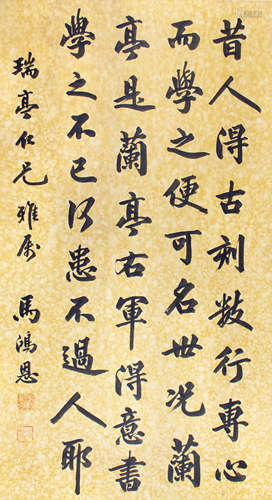 昔人得古刻數行專心
而學之便可名世況蘭
亭是蘭亭右軍得意書
學之不已何患不過人耶
瑞亭仁兄雅属 馬鴻恩